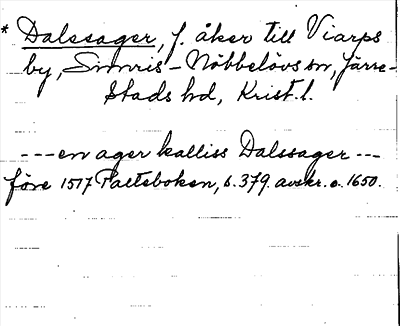 * Dalssager, f. åker till Viarps
by, Simris-Nöbbelövs sn, Järre-
stads hd, Krist. l.
---en ager kalliss Dalssager---
före 1517 Palteboken, s. 379. avskr. o. 1650.